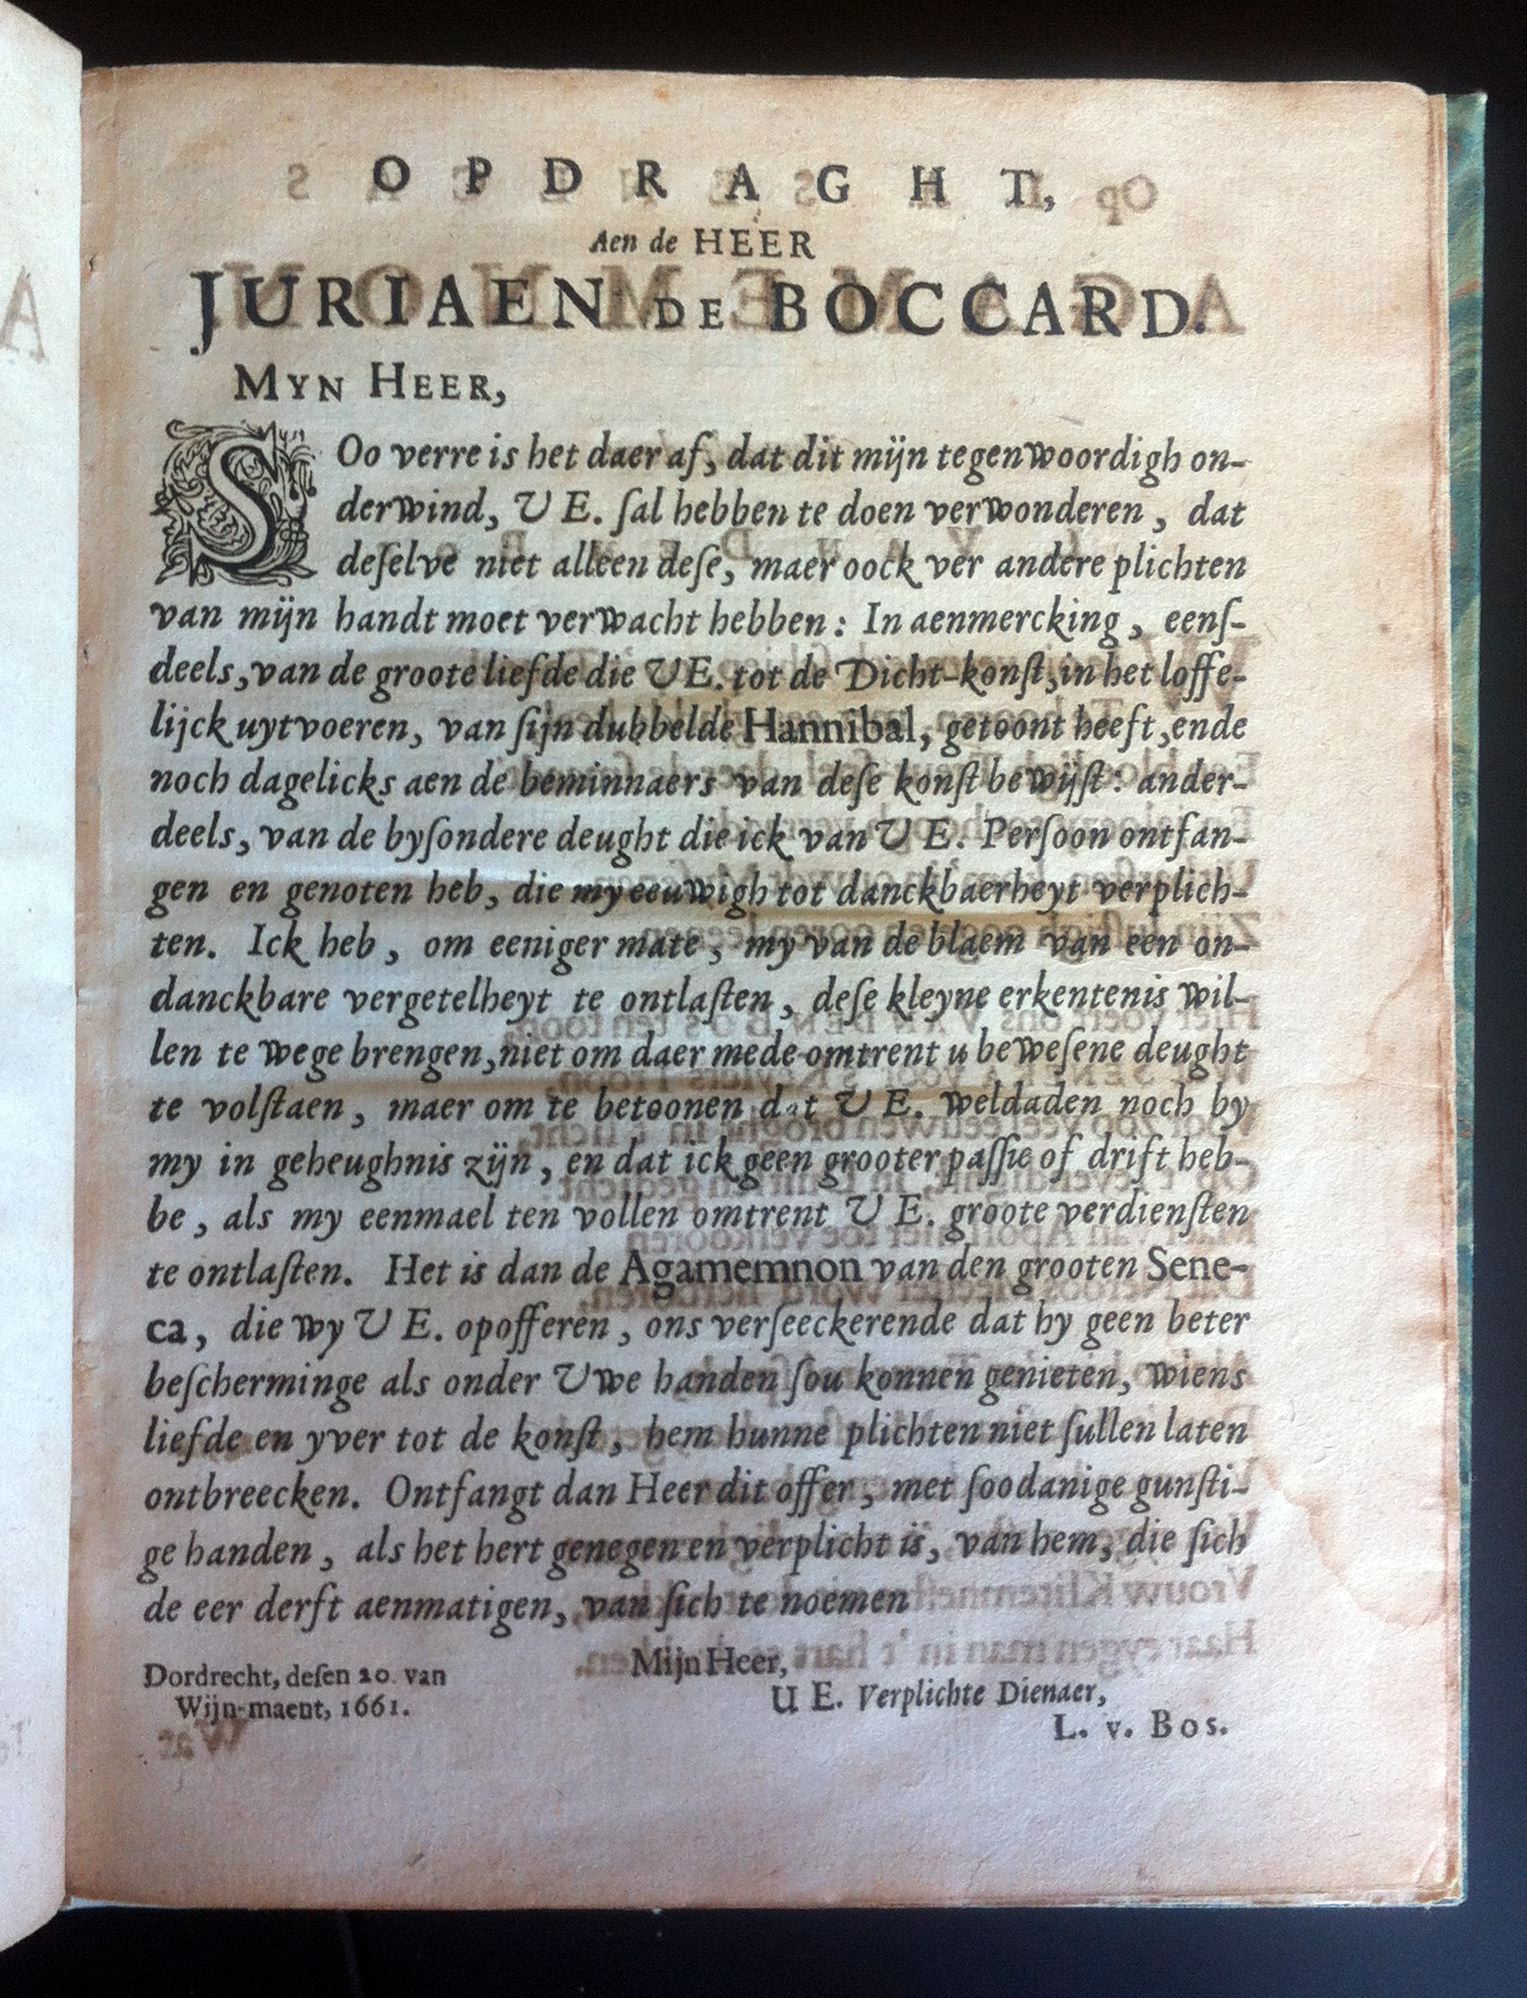 OPDRAGHT,
Aen de HEER
JURIAEN DE BOCCARD.
MYN HEER,
SOo verre is het daer af, dat dit mijn tegenwoordigh on-
derwind, U E. ſal hebben te doen verwonderen, dat
deſelve niet alleen deſe, maer oock ver andere plichten
van mijn handt moet verwacht hebben: In aenmercking, eenſ-
deels, van de groote liefde die U E. tot de Dicht-konſt, in het loffe-
lijck uytvoeren, van ſijn dubbelde Hannibal, getoont heeft, ende
noch dagelicks aen de beminnaers van deſe konſt bewijſt: ander-
deels, van de byſondere deught die ick van U E. Perſoon ontfan-
gen en genoten heb, die my eeuwigh tot danckbaerheyt verplich-
ten. Ick heb, om eeniger mate, my van de blaem van een on-
danckbare vergetelheyt te ontlaſten, deſe kleyne erkentenis wil-
len te wege brengen, niet om daer mede omtrent u beweſene deught
te volſtaen, maer om te betoonen dat U E. weldaden noch by
my in geheughnis zijn, en dat ick geen grooter paſſie of drift heb-
be, als my eenmael ten vollen omtrent U E. groote verdienſten
te ontlaſten. Het is dan de Agamemnon van den grooten Sene-
ca, die wy U E. opofferen, ons verſeeckerende dat hy geen beter
beſcherminge als onder Uwe handen ſou konnen genieten, wiens
liefde en yver tot de konſt, hem hunne plichten niet ſullen laten
ontbreecken. Ontfangt dan Heer dit offer, met ſoodanige gunſti-
ge handen, als het hert genegen en verplicht is, van hem, die ſich
de eer derft aenmatigen, van ſich te noemen
Mijn Heer,
Dordrecht, deſen 20. van
Wijn-maent, 1661.
U E. Verplichte Dienaer,
L. v. Bos.